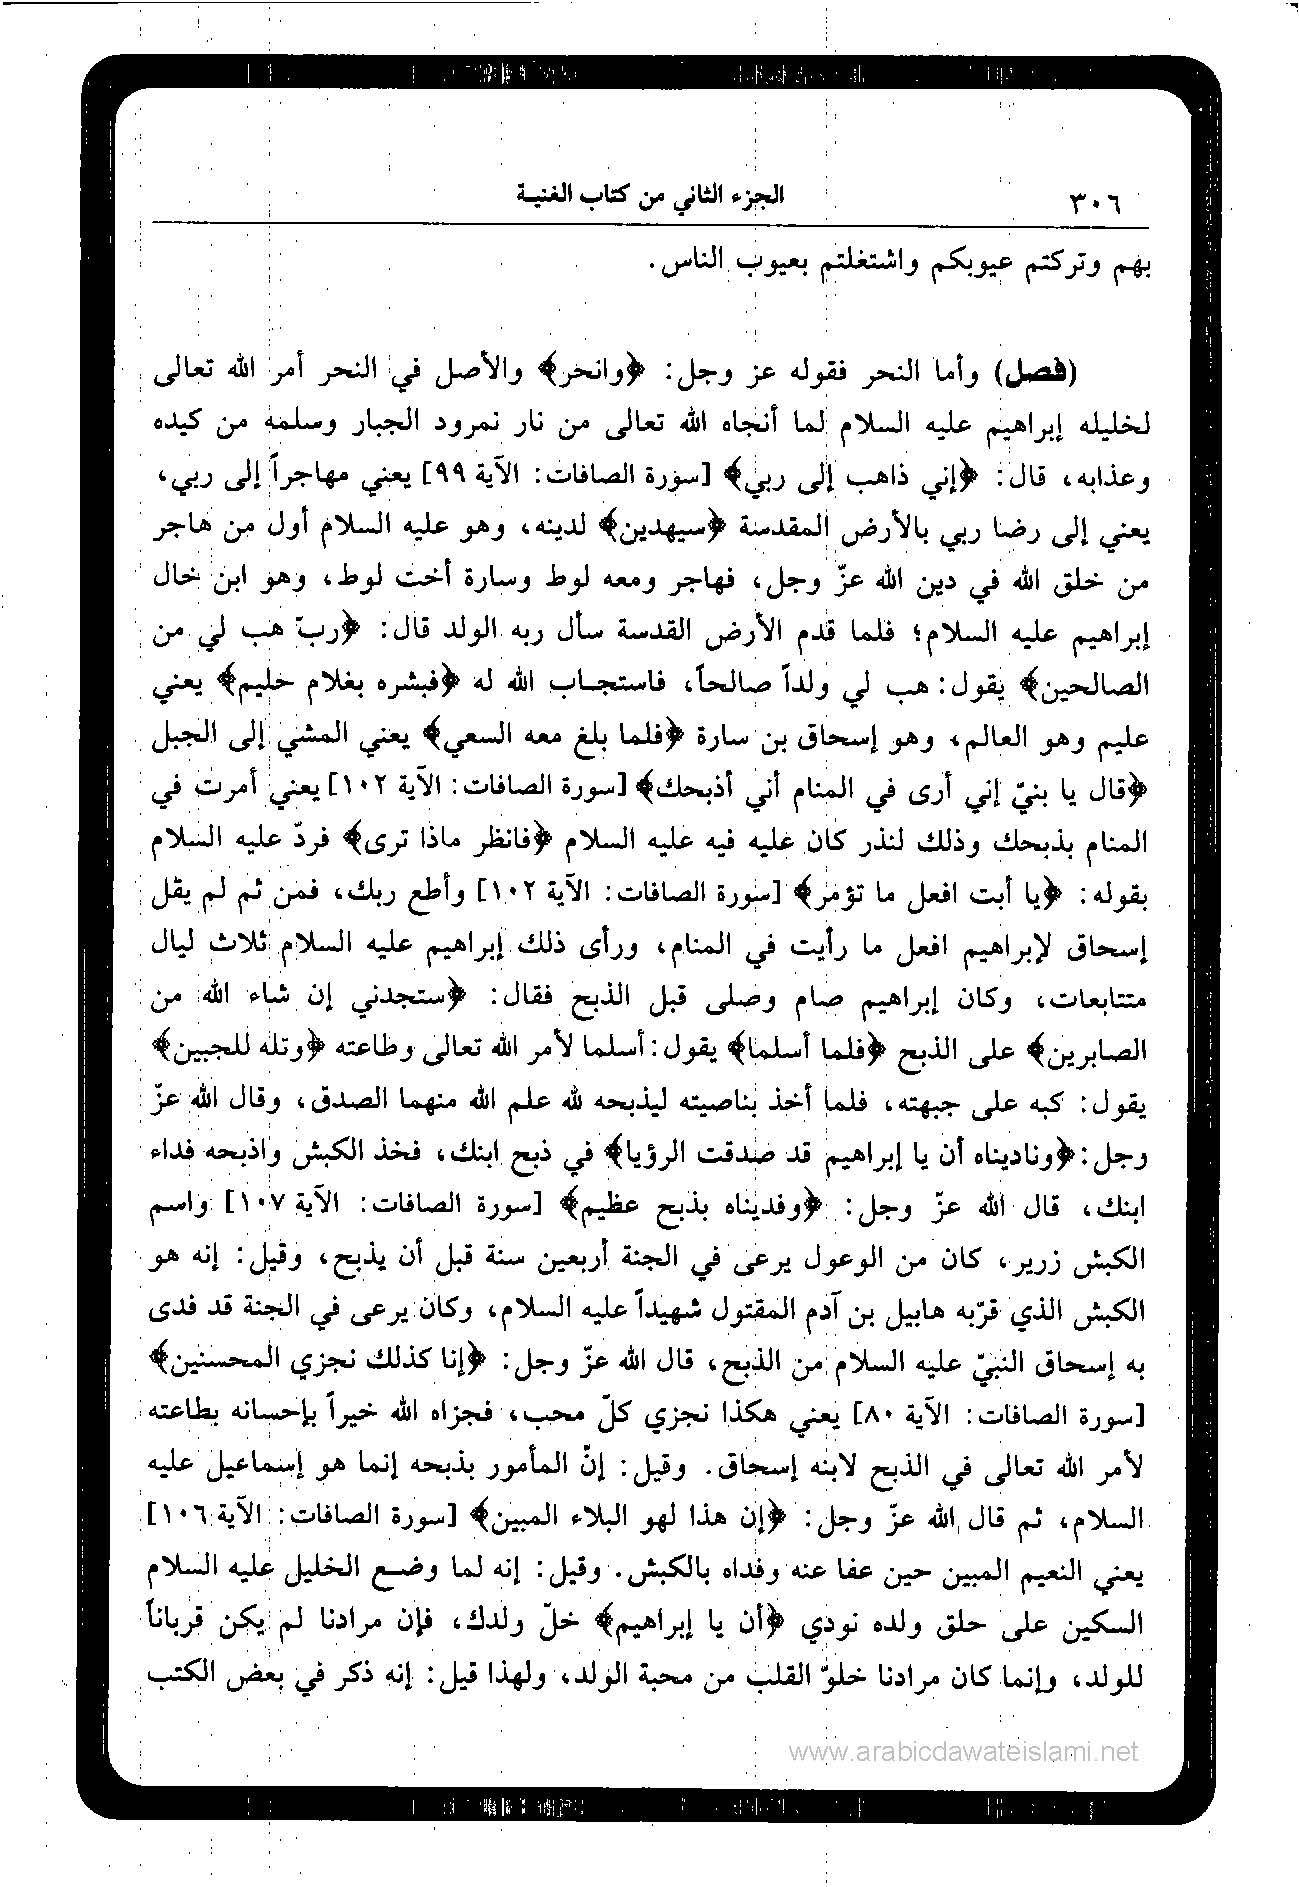 ٣٠٦ الجزء الثاني من كتاب الغنية
بهم وتركتم عيوبكم واشتغلتم بعيوب الناس.
(فصل) وأما النحر فقوله عز وجل: ﴿وانحر﴾ والأصل في النحر أمر الله تعالى
لخليله إبراهيم عليه السلام لما أنجاه الله تعالى من نار نمرود الجبار وسلمه من كيده
وعذابه، قال: ﴿إني ذاهب إلى ربي﴾ [سورة الصافات: الآية ٩٩] يعني مهاجراً إلى ربي،
يعني إلى رضا ربي بالأرض المقدسة ﴿سيهدين﴾ لدينه، وهو عليه السلام أول من هاجر
من خلق الله في دين الله عزّ وجل، فهاجر ومعه لوط وسارة أخت لوط، وهو ابن خال
إبراهيم عليه السلام؛ فلما قدم الأرض القدسة سأل ربه الولد قال: ﴿ربّ هب لي من
الصالحين﴾ يقول: هب لي ولداً صالحاً، فاستجاب الله له ﴿فبشره بغلام حليم﴾ يعني
عليم وهو العالم، وهو إسحاق بن سارة ﴿فلما بلغ معه السعي﴾ يعني المشي إلى الجبل
﴿قال يا بنيّ إني أرى في المنام أني أذبحك﴾ [سورة الصافات: الآية ١٠٢] يعني أمرت في
المنام بذبحك وذلك لنذر كان عليه فيه عليه السلام ﴿فانظر ماذا ترى﴾ فردّ عليه السلام
بقوله: ﴿يا أبت افعل ما تؤمر﴾ [سورة الصافات: الآية ١٠٢] وأطع ربك، فمن ثم لم يقل
إسحاق لإبراهيم افعل ما رأيت في المنام، ورأى ذلك إبراهيم عليه السلام ثلاث ليال
متتابعات، وكان إبراهيم صام وصلى قبل الذبح فقال: ﴿ستجدني إن شاء الله من
الصابرين﴾ على الذبح ﴿فلما أسلما﴾ يقول: أسلما لأمر الله تعالى وطاعته ﴿وتله للجبين﴾
يقول: كبه على جبهته، فلما أخذ بناصيته ليذبحه لله علم الله منهما الصدق، وقال الله عزّ
وجل: ﴿وناديناه أن يا إبراهيم قد صدقت الرؤيا﴾ في ذبح ابنك، فخذ الكبش واذبحه فداء
ابنك، قال الله عزّ وجل: ﴿وفديناه بذبح عظيم﴾ [سورة الصافات: الآية ١٠٧] واسم
الكبش زرير، كان من الوعول يرعى في الجنة أربعين سنة قبل أن يذبح، وقيل: إنه هو
الكبش الذي قرّبه هابيل بن آدم المقتول شهيداً عليه السلام، وكان يرعى في الجنة قد فدى
به إسحاق النبيّ عليه السلام من الذبح، قال الله عزّ وجل: ﴿إنا كذلك نجزي المحسنين﴾
[سورة الصافات: الآية ٨٠] يعني هكذا نجزي كلّ محب، فجزاه الله خيراً بإحسانه بطاعته
لأمر الله تعالى في الذبح لابنه إسحاق. وقيل: إنّ المأمور بذبحه إنما هو إسماعيل عليه
السلام، ثم قال الله عزّ وجل: ﴿إن هذا لهو البلاء المبين﴾ [سورة الصافات: الآية ١٠٦]
يعني النعيم المبين حين عفا عنه وفداه بالكبش. وقيل: إنه لما وضع الخليل عليه السلام
السكين على حلق ولده نودي ﴿أن يا إبراهيم﴾ خلّ ولدك، فإن مرادنا لم يكن قرباناً
للولد، وإنما كان مرادنا خلوّ القلب من محبة الولد، ولهذا قيل: إنه ذكر في بعض الكتب
www.arabicdawateislami.net